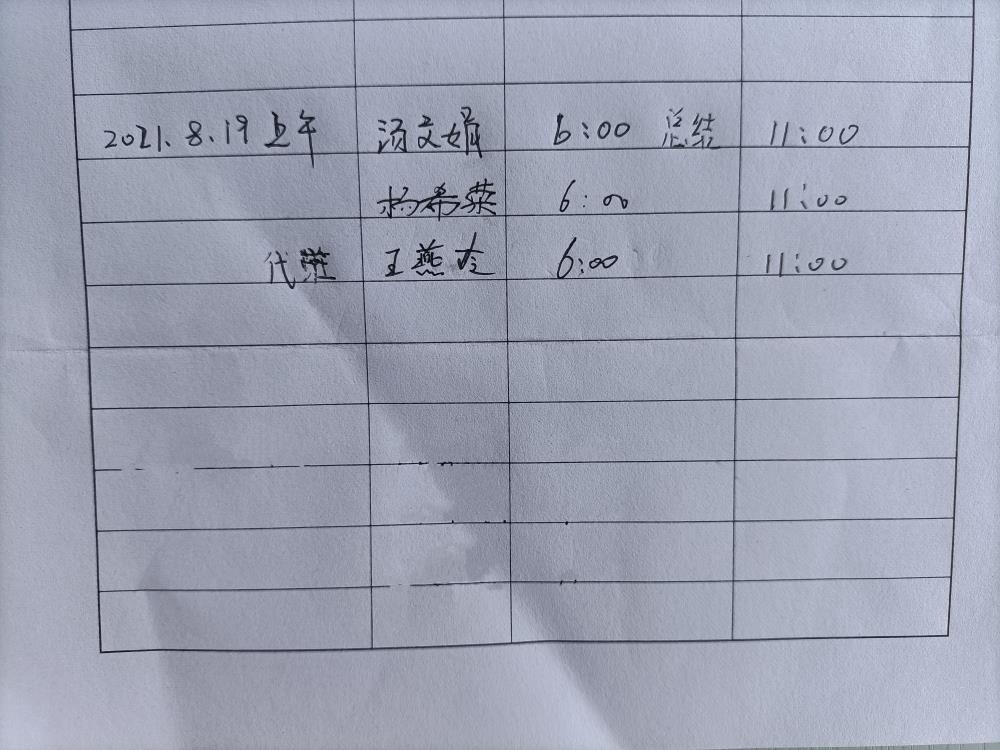 2021.8.19 上午 汤文娟 6:00 总结 11:00
杨希荣 6:00 11:00
代班 王燕友 6:00 11:00